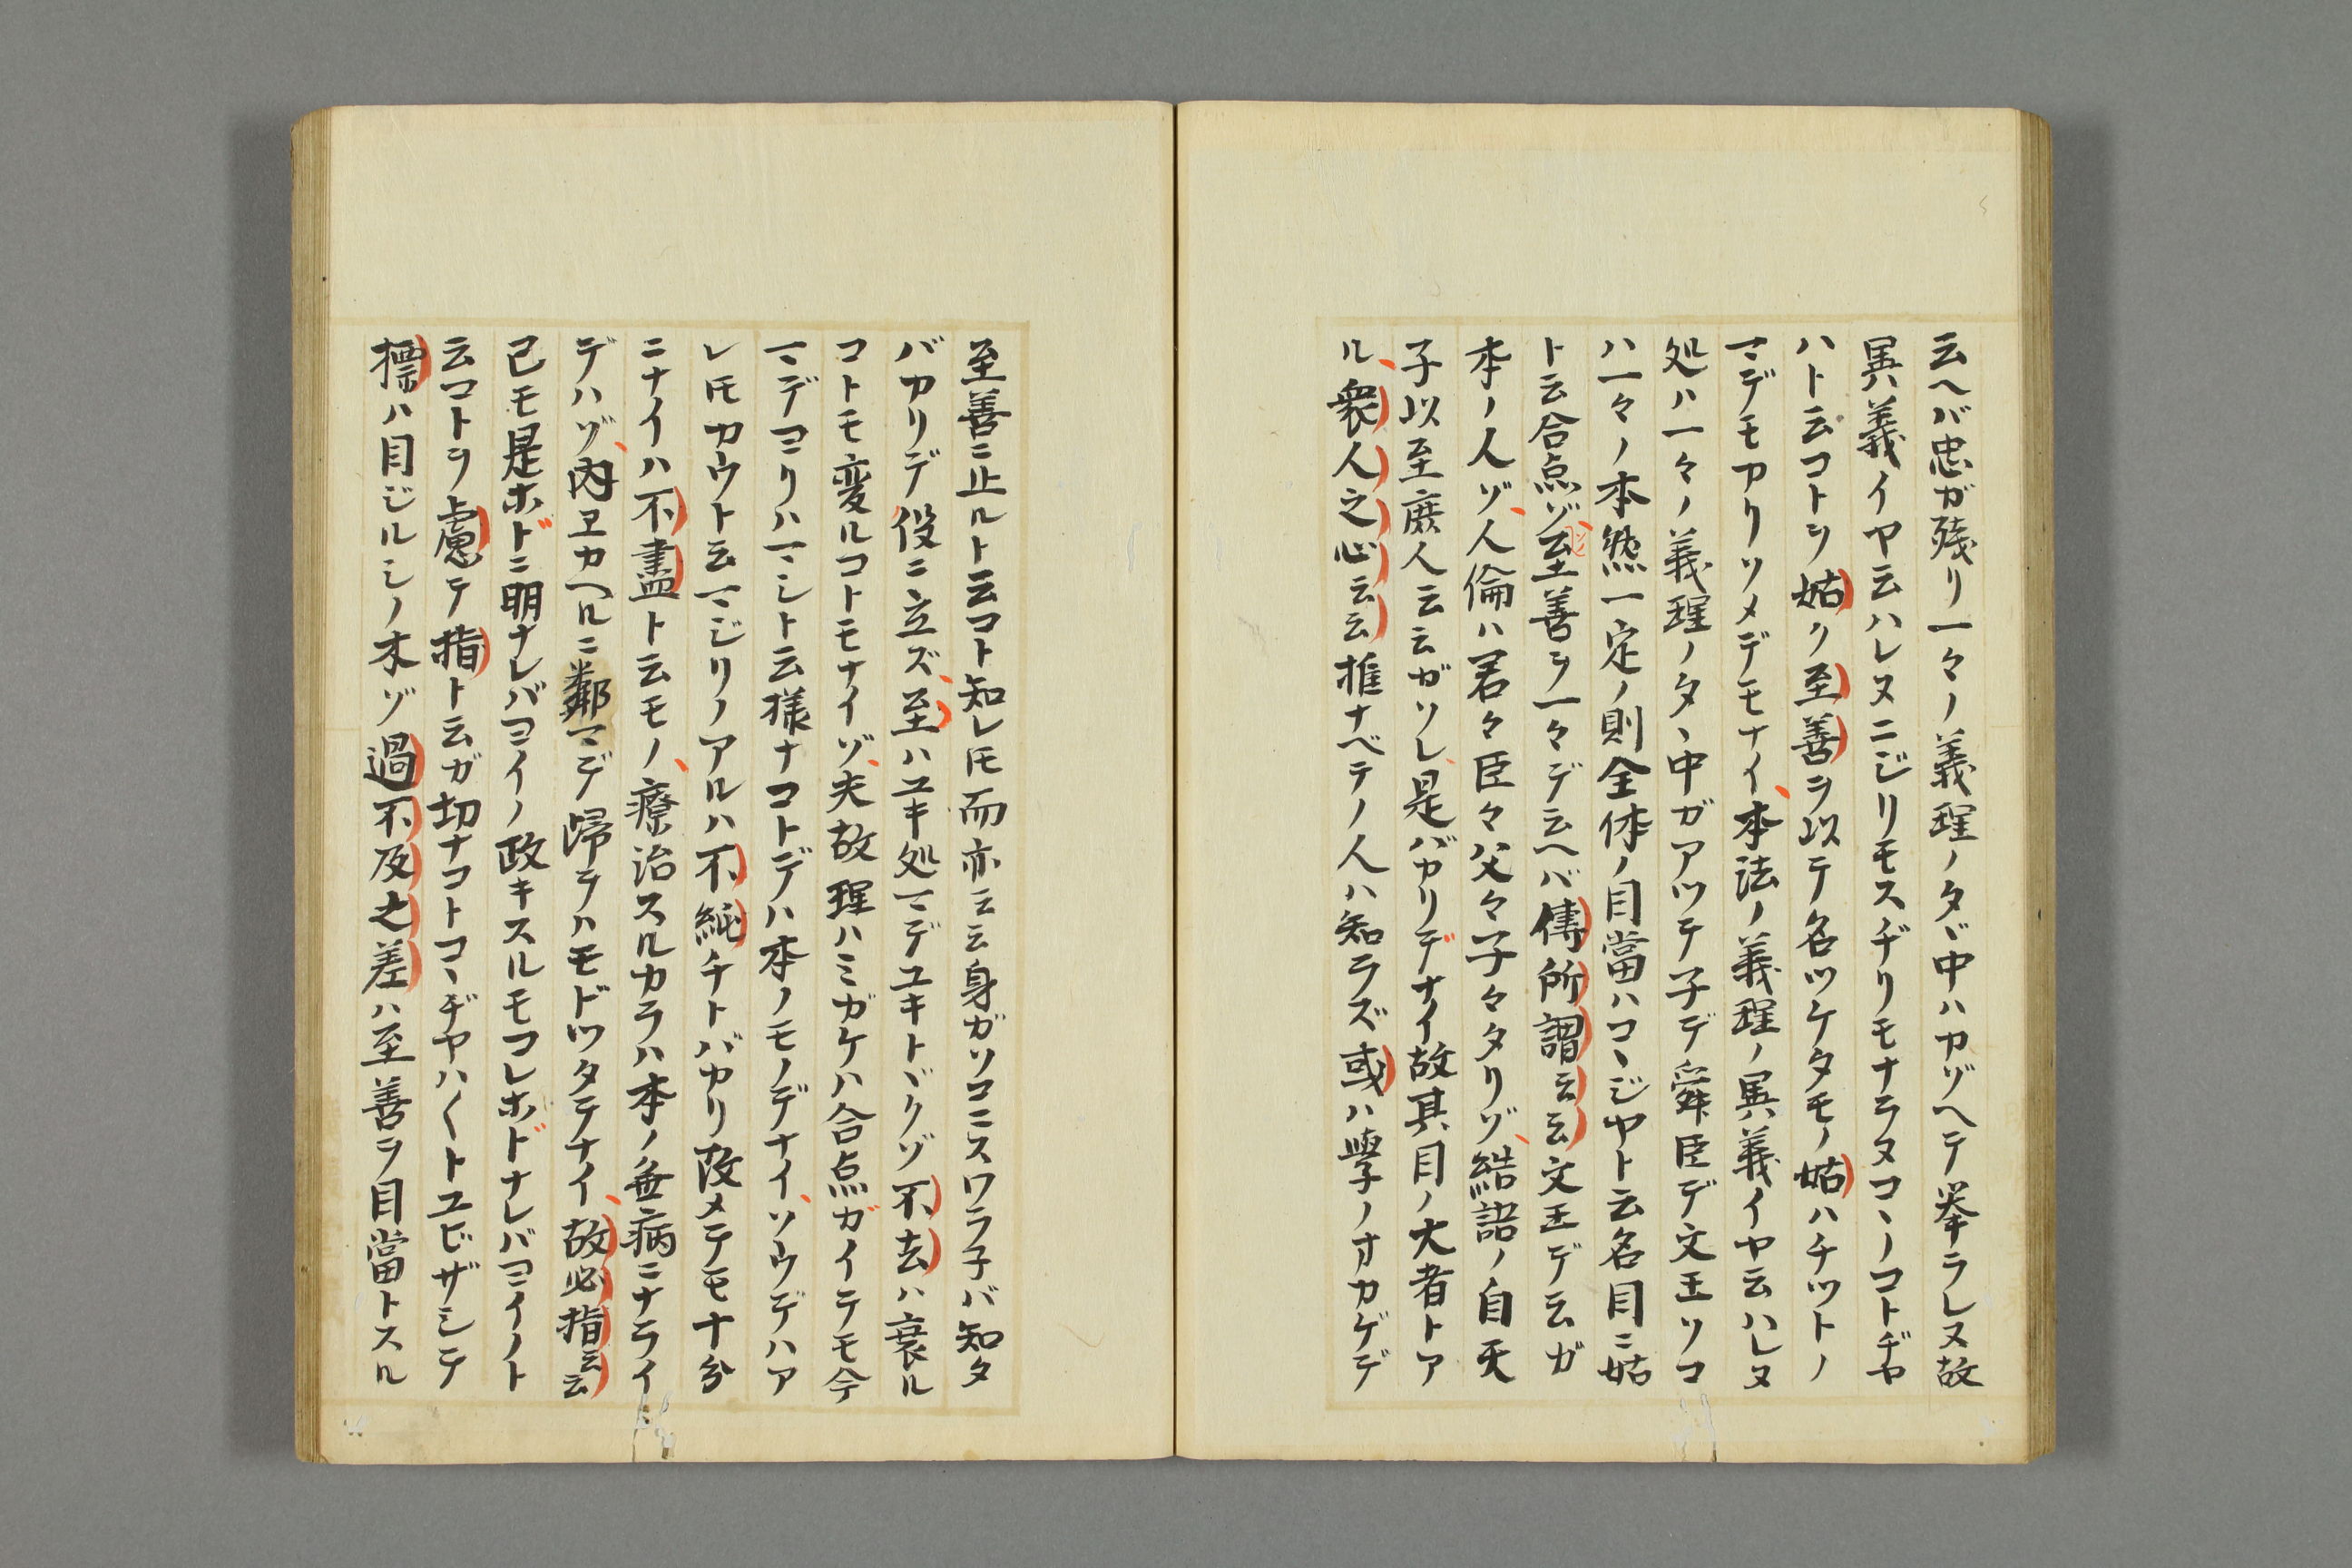 云ヘバ忠ガ残リ一々ノ義理ノタヾ中ハカゾヘテ挙ラレヌ故
異義イヤ云ハレヌニジリモスヂリモナラヌコヽノコトヂヤ
ハト云コトヲ姑ク至善ヲ以テ名ツケタモノ姑ハチツトノ
マデモカリソメデモナイ本法ノ義理ノ異義イヤ云ハレヌ
処ハ一々ノ義理ノタヽ中ガアツテ子デ舜臣デ文王ソコ
ハ一々ノ本然一定ノ則全体ノ目當ハコヽジヤト云名目ニ姑
ト云合点ゾ至善ヲ一々デ云ヘバ傳所謂云云文王デ云ガ
本ノ人ゾ人倫ハ君々臣々父々子々タリゾ結語ノ自天
子以至庶人云云ガソレ是バカリデナイ故其目ノ大者トア
ル衆人之心云云推ナベテノ人ハ知ラズ或ハ學ノオカゲデ
至善ニ止ルト云コト知レ𪜈而亦云云身ガソコニスワラ子バ知タ
バカリデ役ニ立ズ至ハユキ処マデユキトヾクゾ不去ハ裏ル
コトモ変ルコトモナイゾ夫故理ハミガケハ合点ガイテモ今
マデヨリハマシト云様ナコトデハ本ノモノデナイソウデハア
レ𪜈カウト云マジリノアルハ不純チトバカリ改メテモ十分
ニナイハ不盡ト云モノ療治スルカラハ本ノ無病ニナライ
デハゾ内ヱカヘルニ鄰マデ帰テハモドツタテナイ故必指云云
己モ是ホドニ明ナレバヨイノ政キスルモコレホドナレバヨイノト
云コトヲ慮テ指ト云ガ切ナコトコヽヂヤハ〱トユビザシテ
標ハ目ジルシノ木ゾ過不及之差ハ至善ヲ目當トスル